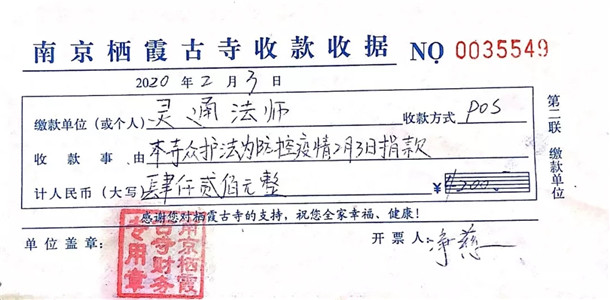 南京栖霞古寺收款收据 NO 0035549
2020 年 2 月 3 日
缴款单位（或个人） 灵通法师 收款方式 POS
收款事由 本寺众护法为防控疫情2月3日捐款
计人民币（大写） 肆仟贰佰元整 ￥4200.-
感谢您对栖霞古寺的支持，祝您全家幸福、健康！
单位盖章： 开票人： 净慈
南京栖霞
古寺财务
专用章
第二联 缴款单位